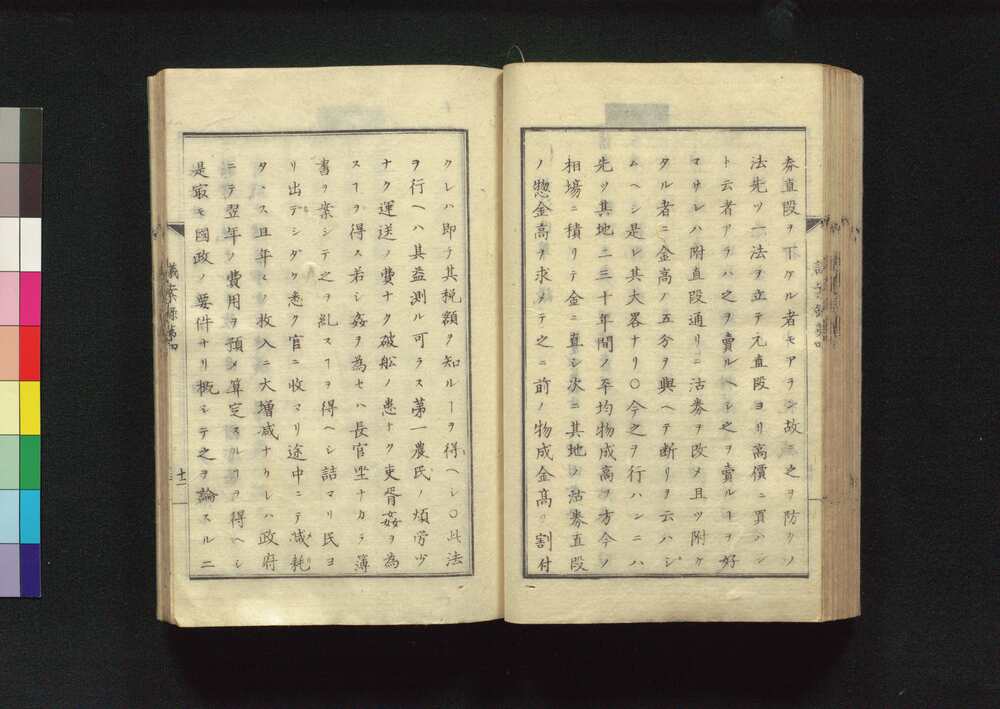 券直段ヲ下ケル者モアラン故ニ之ヲ防クノ
法先ツ一法ヲ立テ元直段ヨリ高價ニ買ハン
ト云者アラハ之ヲ賣ルヘシ之ヲ賣ルヿヲ好
マサレハ附直段通リニ沽券ヲ改メ且ツ附ケ
タル者ニ金高ノ五分ヲ與ヘテ断リヲ云ハシ
ムヘシ是レ其大畧ナリ〇今之ヲ行ハンニハ
先ツ其地ノ二三十年間ノ平均物成高ヲ方今ノ
相場ニ積リテ金ニ直シ次ニ其地ノ沽券直段
ノ惣金高ヲ求メテ之ニ前ノ物成金高ヲ割付
クレハ即チ其税額ヲ知ルヿヲ得ヘシ〇此法
ヲ行ヘハ其益測ル可ラス第一農民ノ煩労少
ナク運送ノ費ナク破舩ノ患ナク吏胥姦ヲ為
スヿヲ得ス若シ姦ヲ為セハ長官坐ナカラ簿
書ヲ案シテ之ヲ糺スヿヲ得ヘシ詰マリ民ヨ
リ出デシダケ悉ク官ニ收マリ途中ニテ減耗
セス且年々ノ收入ニ大増减ナケレハ政府
ニテ翌年ノ費用ヲ預メ算定スルヿヲ得ヘシ
是冣モ國政ノ要件ナリ概シテ之ヲ論スルニ
議案録第四
十二